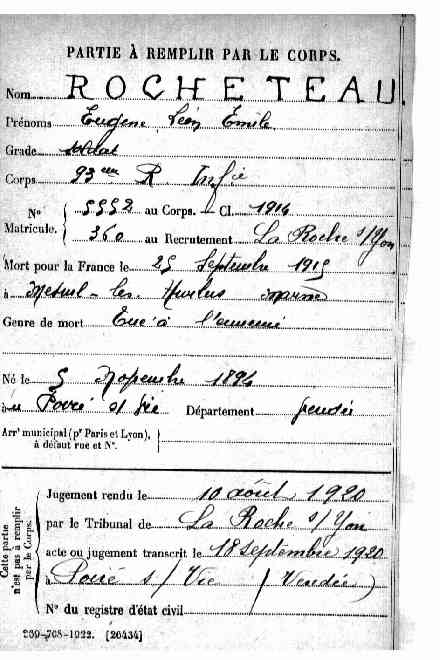 PARTIE À REMPLIR PAR LE CORPS.
Nom ROCHETEAU
Prénoms Eugène Léon Emile
Grade soldat
Corps 93eme R Infie
N° Matricule. { 5552 au Corps. — Cl. 1914
360 au Recrutement La Roche s/Yon
Mort pour la France le 25 Septembre 1915
à Mesnil-les-Hurlus Marne
Genre de mort Tué à l'ennemi
Né le 5 Novembre 1894
à Poiré s/ Vie Département Vendée
Arrt municipal (pr Paris et Lyon), à défaut rue et N°.
Cette partie n'est pas à remplir par le Corps.
Jugement rendu le 10 août 1920
par le Tribunal de La Roche s/Yon
acte ou jugement transcrit le 18 septembre 1920
à Poiré s/ Vie (Vendée)
N° du registre d'état civil
269-708-1922. [26434]